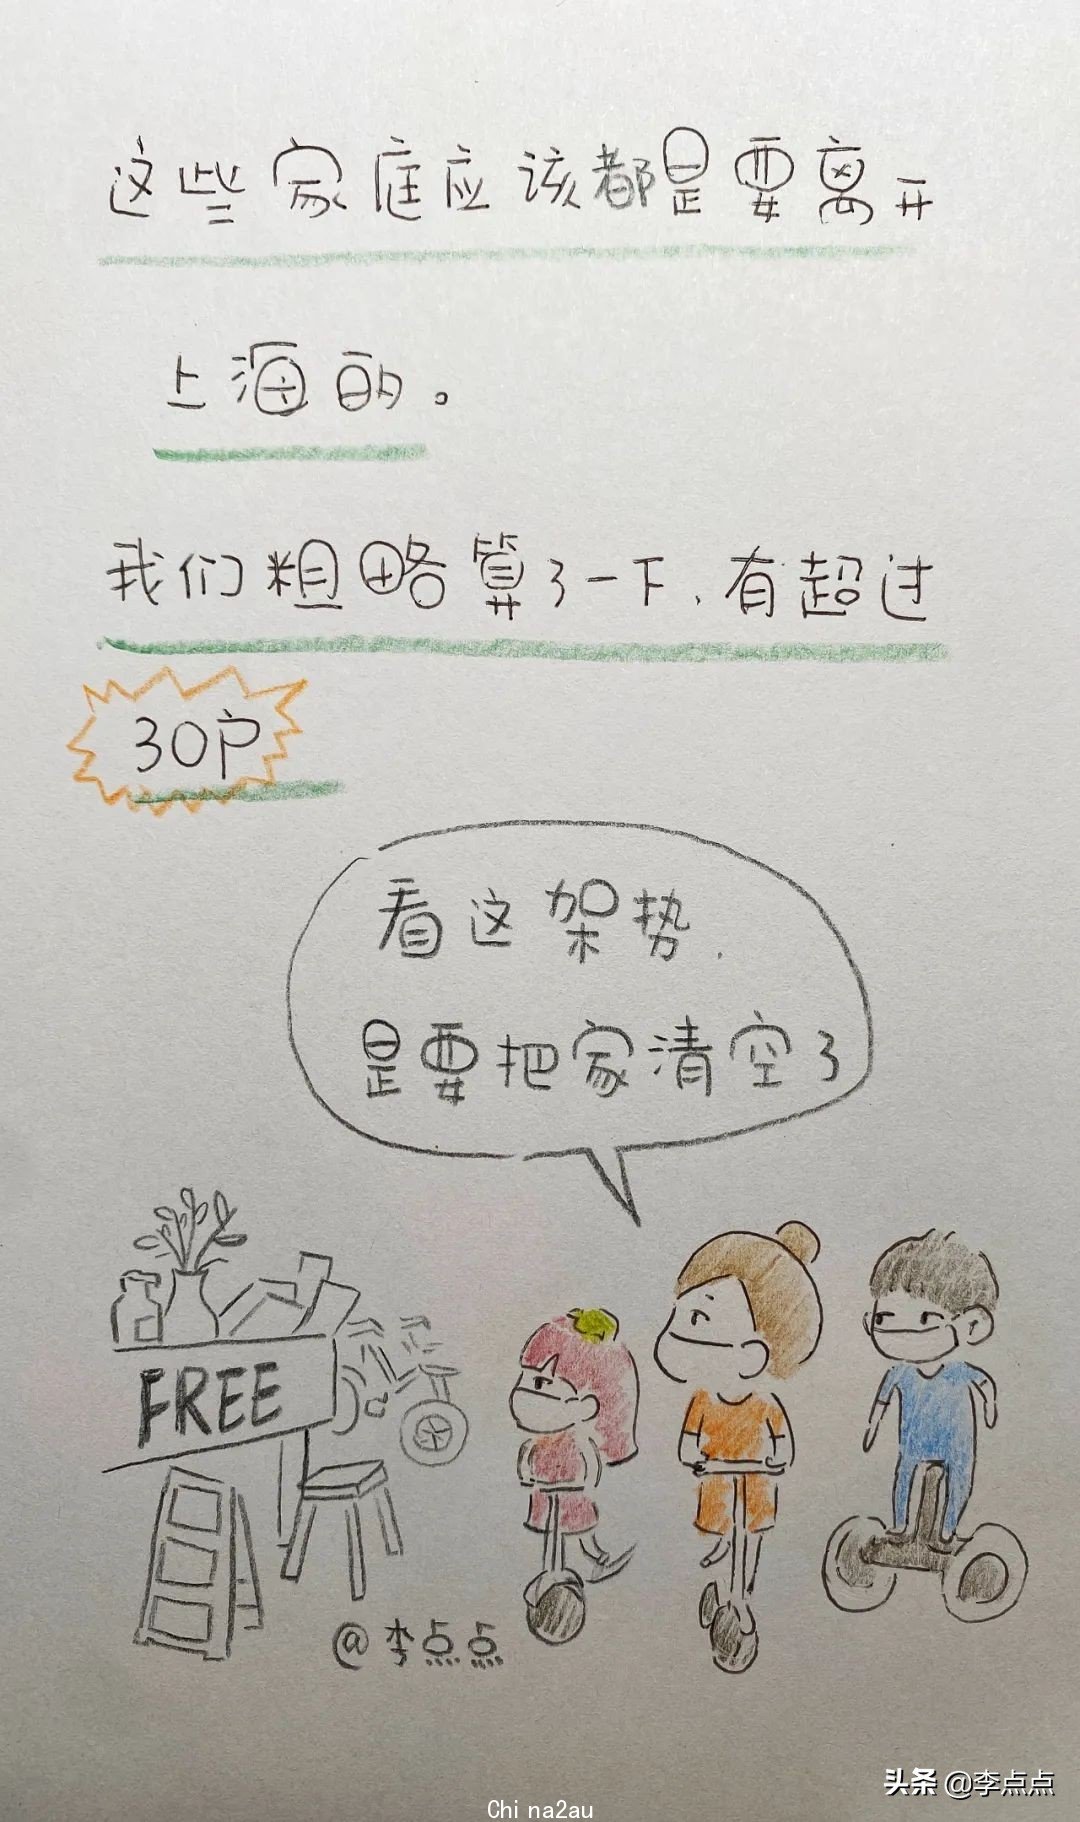 这些家庭应该都是要离开
上海的。
我们粗略算了一下,有超过
30户
看这架势,
是要把家清空了
FREE
@李点点
头条 @李点点
China2au